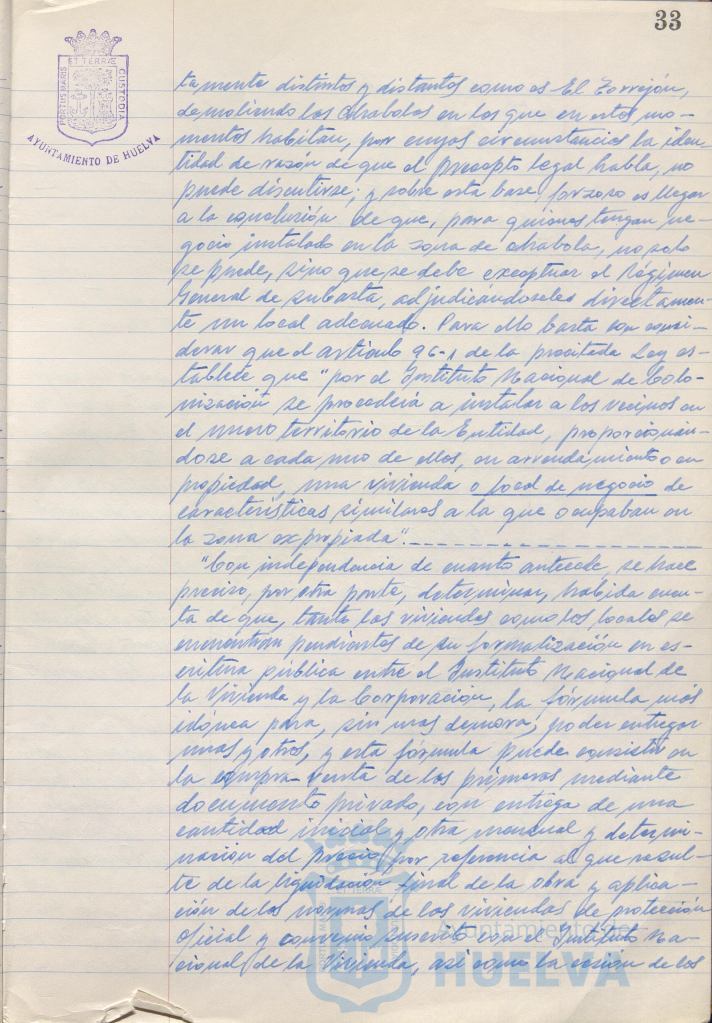 33
PORTUS MARIS
ET TERRÆ
CUSTODIA
AYUNTAMIENTO DE HUELVA
tamente distintos y distantes como es El Torrejón,
demoliendo las Chabolas en las que en estos mo-
mentos habitan, por cuyas circunstancias la iden-
tidad de razón de que el precepto legal habla, no
puede discutirse; y sobre esta base, forzoso es llegar
a la conclusión de que, para quienes tengan ne-
gocio instalado en la zona de chabola, no solo
se puede, sino que se debe exceptuar el Régimen
General de subasta, adjudicándoseles directamen-
te un local adecuado. Para ello basta con consi-
derar que el artículo 96-1 de la precitada Ley es-
tablece que "por el Instituto Nacional de Colo-
nización se procederá a instalar a los vecinos en
el nuevo territorio de la Entidad, proporcionán-
dose a cada uno de ellos, en arrendamiento o en
propiedad, una vivienda o local de negocio de
características similares a la que ocupaban en
la zona expropiada".
"Con independencia de cuanto antecede, se hace
preciso, por otra parte, determinar, habida cuen-
ta de que, tanto las viviendas como los locales se
encuentran pendientes de su formalización en es-
critura pública entre el Instituto Nacional de
la Vivienda y la Corporación, la fórmula más
idónea para, sin mas demora, poder entregar
unas y otros, y esta fórmula puede consistir en
la compra-venta de las primeras mediante
documento privado, con entrega de una
cantidad inicial y otra mensual y determi-
nación del precio por referencia al que resul-
te de la liquidación final de la obra y aplica-
ción de las normas de las viviendas de protección
oficial y convenio suscrito con el Instituto Na-
cional de la Vivienda, así como la cesión de los
Ayuntamiento de
HUELVA